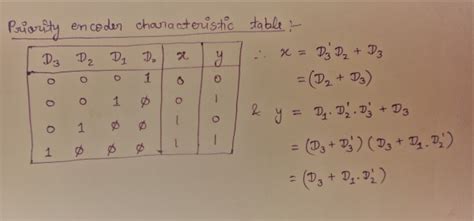 Priority encoder characteristic table :-
D₃ D₂ D₁ D₀ x y
0 0 0 1 0 0
0 0 1 ∅ 0 1
0 1 ∅ ∅ 1 0
1 ∅ ∅ ∅ 1 1
∴ x = D₃'D₂ + D₃
= (D₂ + D₃)
& y = D₁·D₂'·D₃' + D₃
= (D₃ + D₃') (D₃ + D₁·D₂')
= (D₃ + D₁·D₂')